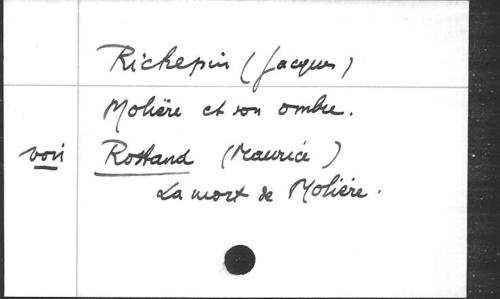 Richepin (Jacques)
Molière et son ombre.
voir Rostand (Maurice)
La mort de Molière.